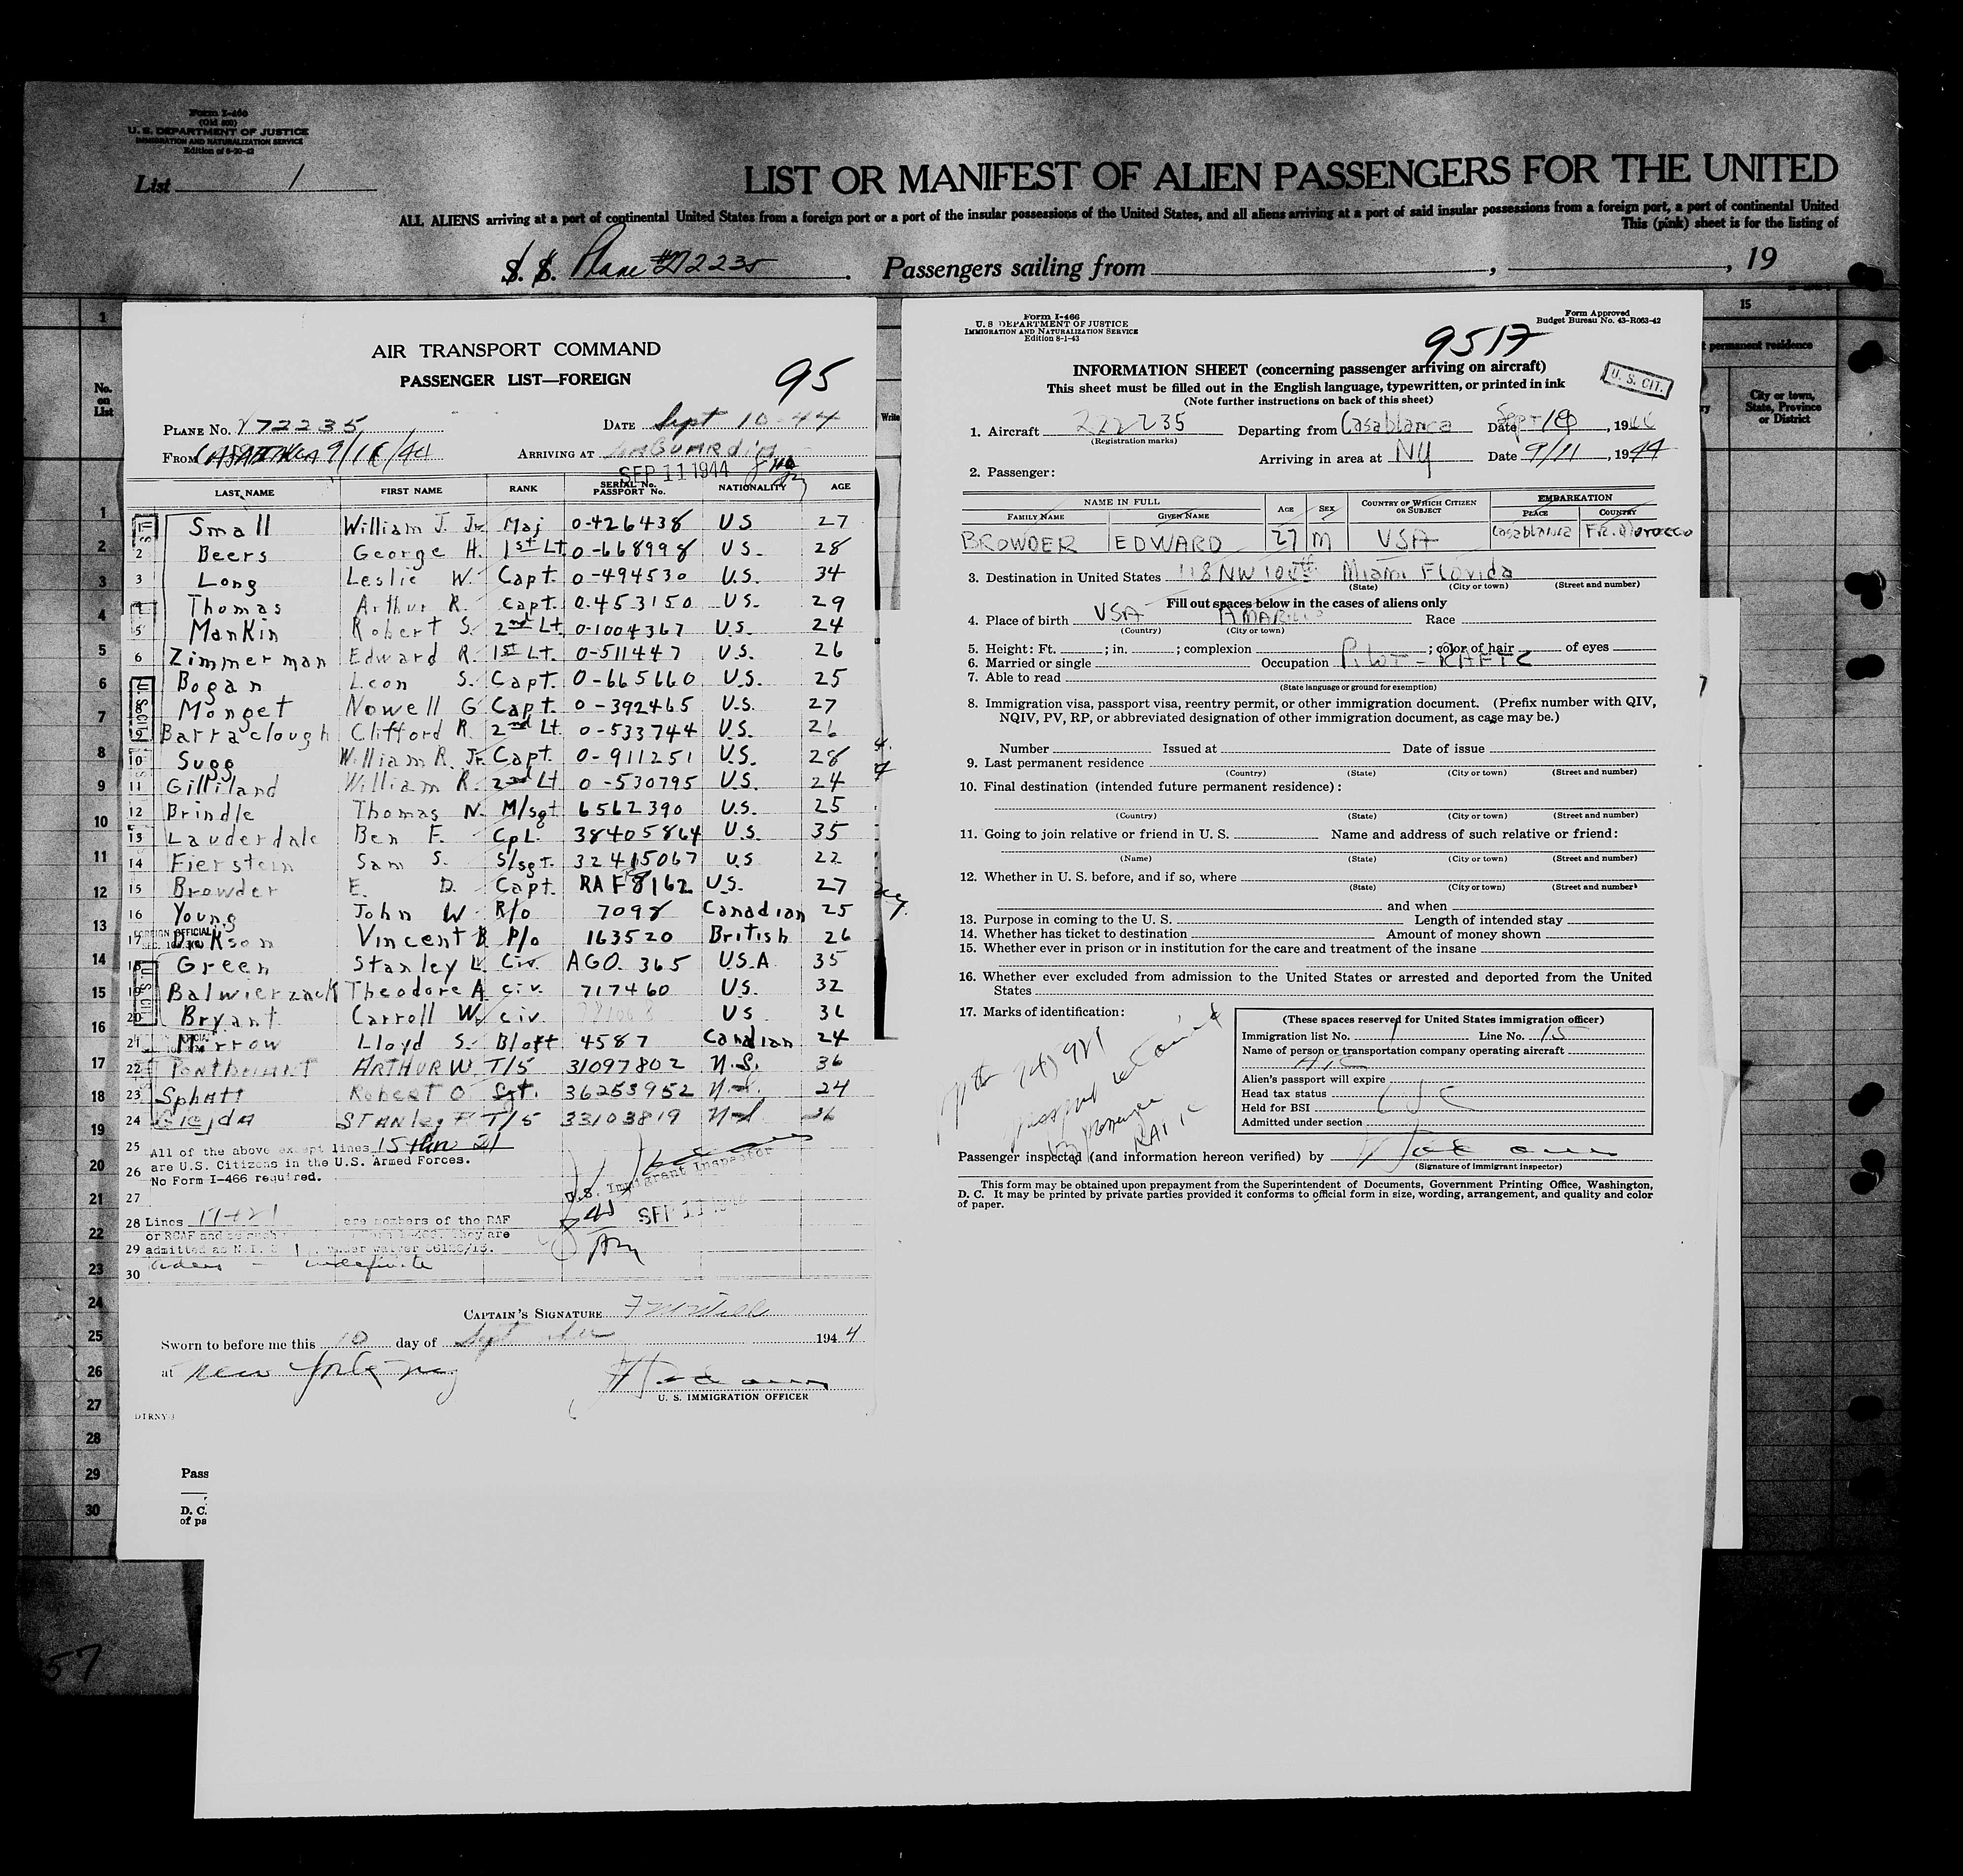 Form I-466
(Old 500)
U. S. DEPARTMENT OF JUSTICE
IMMIGRATION AND NATURALIZATION SERVICE
Edition of 6-20-42
List 1
LIST OR MANIFEST OF ALIEN PASSENGERS FOR THE UNITED
ALL ALIENS arriving at a port of continental United States from a foreign port or a port of the insular possessions of the United States, and all aliens arriving at a port of said insular possessions from a foreign port, a port of continental United
This (pink) sheet is for the listing of
S. S. Plane #272235. Passengers sailing from , , 19
AIR TRANSPORT COMMAND
PASSENGER LIST—FOREIGN
95
PLANE No. 272235 DATE Sept 10-44
FROM ARRIVING AT LaGuardia
SEP 11 1944
LAST NAME FIRST NAME RANK SERIAL No. PASSPORT No. NATIONALITY AGE
Small William J. Jr. Maj 0-426438 US 27
2 Beers George H. 1st Lt 0-668998 US. 28
3 Long Leslie W. Capt. 0-494530 U.S. 34
4 Thomas Arthur R. Capt. 0-453150 US. 29
5 Mankin Robert S. 2nd Lt 0-1004367 U.S. 24
6 Zimmerman Edward R. 1st Lt. 0-511447 U.S. 26
Bogan Leon S. Capt. 0-665660 U.S. 25
8 Monget Nowell G Capt. 0-392465 U.S. 27
9 Barraclough Clifford R. 2nd Lt 0-533744 U.S. 26
10 Sugg William R. Jr. Capt. 0-911251 U.S. 28
11 Gilliland William R. 2nd Lt 0-530795 U.S. 24
12 Brindle Thomas N. M/sgt 6562390 U.S. 25
13 Lauderdale Ben F. CpL. 38405864 U.S. 35
14 Fierstein Sam S. S/sgt. 32415067 U.S 22
15 Browder E. D. Capt. RAF8162 U.S. 27
16 Young John W. R/o 7098 Canadian 25
17 Vincent B P/o 163520 British 26
18 Green Stanley L. Civ. AGO. 365 U.S.A 35
19 Balwierzack Theodore A civ. 717460 US. 32
20 Bryant Carroll W. civ. US
21 Morrow Lloyd S. 4587 24
22 ARTHUR W. T/5 31097802 36
23 Sphatt Robert O Sgt. 36253952 24
24 STANLEY T/5 33103819
25 All of the above except lines 15 thru 21
26 are U.S. Citizens in the U.S. Armed Forces.
No Form I-466 required.
27
U.S. Immigrant Inspector
28 Lines 17+21 are members of the RAF
or RCAF
29 admitted as N.I.
indefinite
30
CAPTAIN'S SIGNATURE
Sworn to before me this 10 day of Sept 1944
at New York NY
U. S. IMMIGRATION OFFICER
DTRNY-3
Form I-466
U. S DEPARTMENT OF JUSTICE
IMMIGRATION AND NATURALIZATION SERVICE
Edition 8-1-43
Form Approved
Budget Bureau No. 43-R063-42
9517
U. S. CIT.
INFORMATION SHEET (concerning passenger arriving on aircraft)
This sheet must be filled out in the English language, typewritten, or printed in ink
(Note further instructions on back of this sheet)
1. Aircraft 272235 Departing from Casablanca Date Sept 10, 1944
(Registration marks)
Arriving in area at NY Date 9/11, 1944
2. Passenger:
NAME IN FULL AGE SEX COUNTRY OF WHICH CITIZEN OR SUBJECT EMBARKATION
FAMILY NAME GIVEN NAME PLACE COUNTRY
BROWDER EDWARD 27 M USA Casablanca Fr. Morocco
3. Destination in United States 118 NW 100th Miami Florida
(State) (City or town) (Street and number)
Fill out spaces below in the cases of aliens only
4. Place of birth USA AMARILLO Race
(Country) (City or town)
5. Height: Ft. ; in. ; complexion ; color of hair of eyes
6. Married or single Occupation Pilot - RAFTC
7. Able to read
(State language or ground for exemption)
8. Immigration visa, passport visa, reentry permit, or other immigration document. (Prefix number with QIV,
NQIV, PV, RP, or abbreviated designation of other immigration document, as case may be.)
Number Issued at Date of issue
9. Last permanent residence
(Country) (State) (City or town) (Street and number)
10. Final destination (intended future permanent residence):
(Country) (State) (City or town) (Street and number)
11. Going to join relative or friend in U. S. Name and address of such relative or friend:
(Name) (State) (City or town) (Street and number)
12. Whether in U. S. before, and if so, where
(State) (City or town) (Street and number)
and when
13. Purpose in coming to the U. S. Length of intended stay
14. Whether has ticket to destination Amount of money shown
15. Whether ever in prison or in institution for the care and treatment of the insane
16. Whether ever excluded from admission to the United States or arrested and deported from the United
States
17. Marks of identification:
passport retained
by passenger
RAFTC
(These spaces reserved for United States immigration officer)
Immigration list No. 1 Line No. 15
Name of person or transportation company operating aircraft
ATC
Alien's passport will expire
Head tax status
Held for BSI USC
Admitted under section
Passenger inspected (and information hereon verified) by
(Signature of immigrant inspector)
This form may be obtained upon prepayment from the Superintendent of Documents, Government Printing Office, Washington,
D. C. It may be printed by private parties provided it conforms to official form in size, wording, arrangement, and quality and color
of paper.
15
permanent residence
City or town, State, Province or District
No. on List
1
2
3
4
5
6
7
8
9
10
11
12
13
14
15
16
17
18
19
20
21
22
23
24
25
26
27
28
29
30
Pass
D. C.
of pa
57